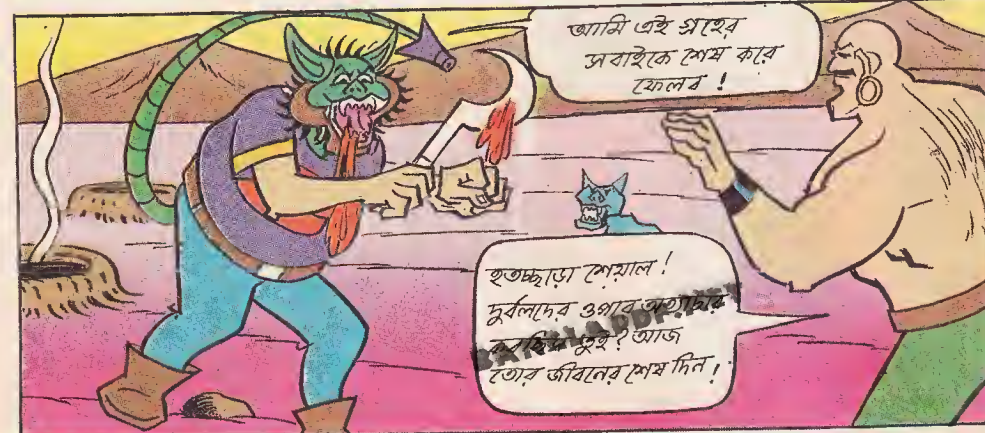 আমি এই গ্রহের
সবাইকে শেষ করে
ফেলব !
হতচ্ছাড়া শেয়াল !
দুর্বলদের ওপর অত্যাচার
করছিস তুই? আজ
তোর জীবনের শেষ দিন !